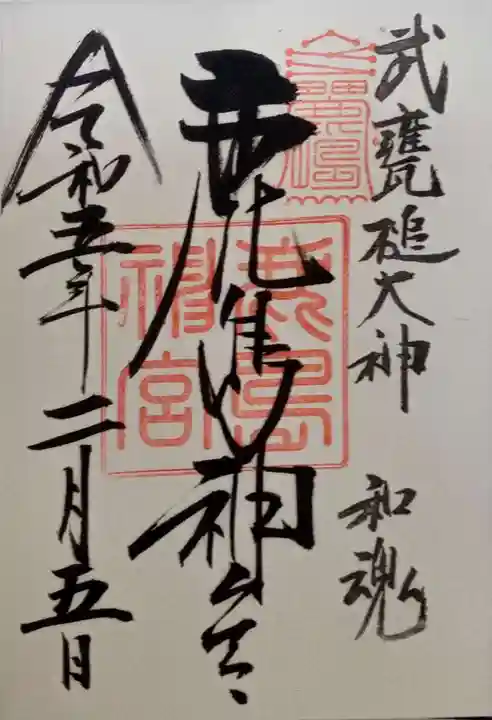 武甕槌大神 和魂
鹿島神宮
鹿島
神宮
令和五年二月五日